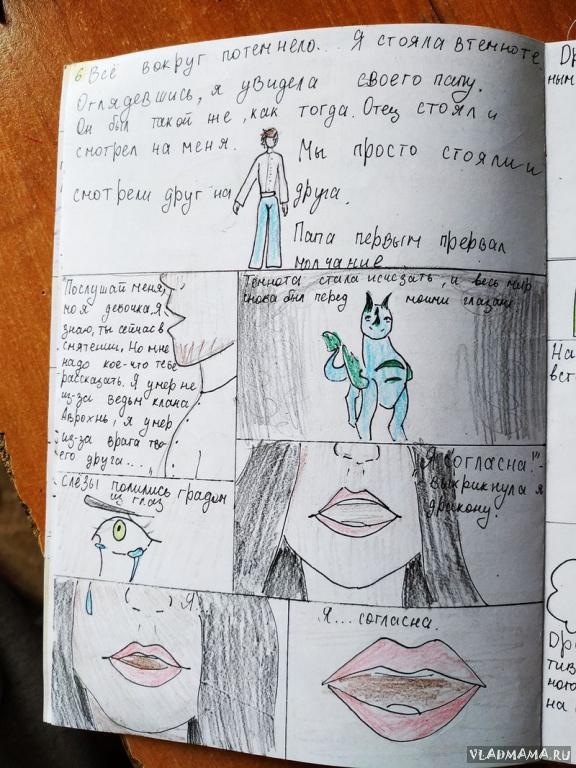 6 Всё вокруг потемнело... Я стояла в темноте
Оглядевшись, я увидела своего папу.
Он был такой же, как тогда. Отец стоял и
смотрел на меня. Мы просто стояли и
смотрели друг на друга.
Папа первым прервал
молчание
Послушай меня,
моя девочка. Я
знаю, ты сейчас в
смятении. Но мне
надо кое-что тебе
рассказать. Я умер не
из-за ведьм клана
Аврохнь, я умер
из-за врага тво-
его друга...
Темнота стала исчезать, и весь мир
снова был перед моими глазами
Слёзы полились градом
из глаз
"Я согласна"-
выкрикнула я
дракону.
Я...
Я... согласна.
На
вст
тив
ного
на
VLADMAMA.RU